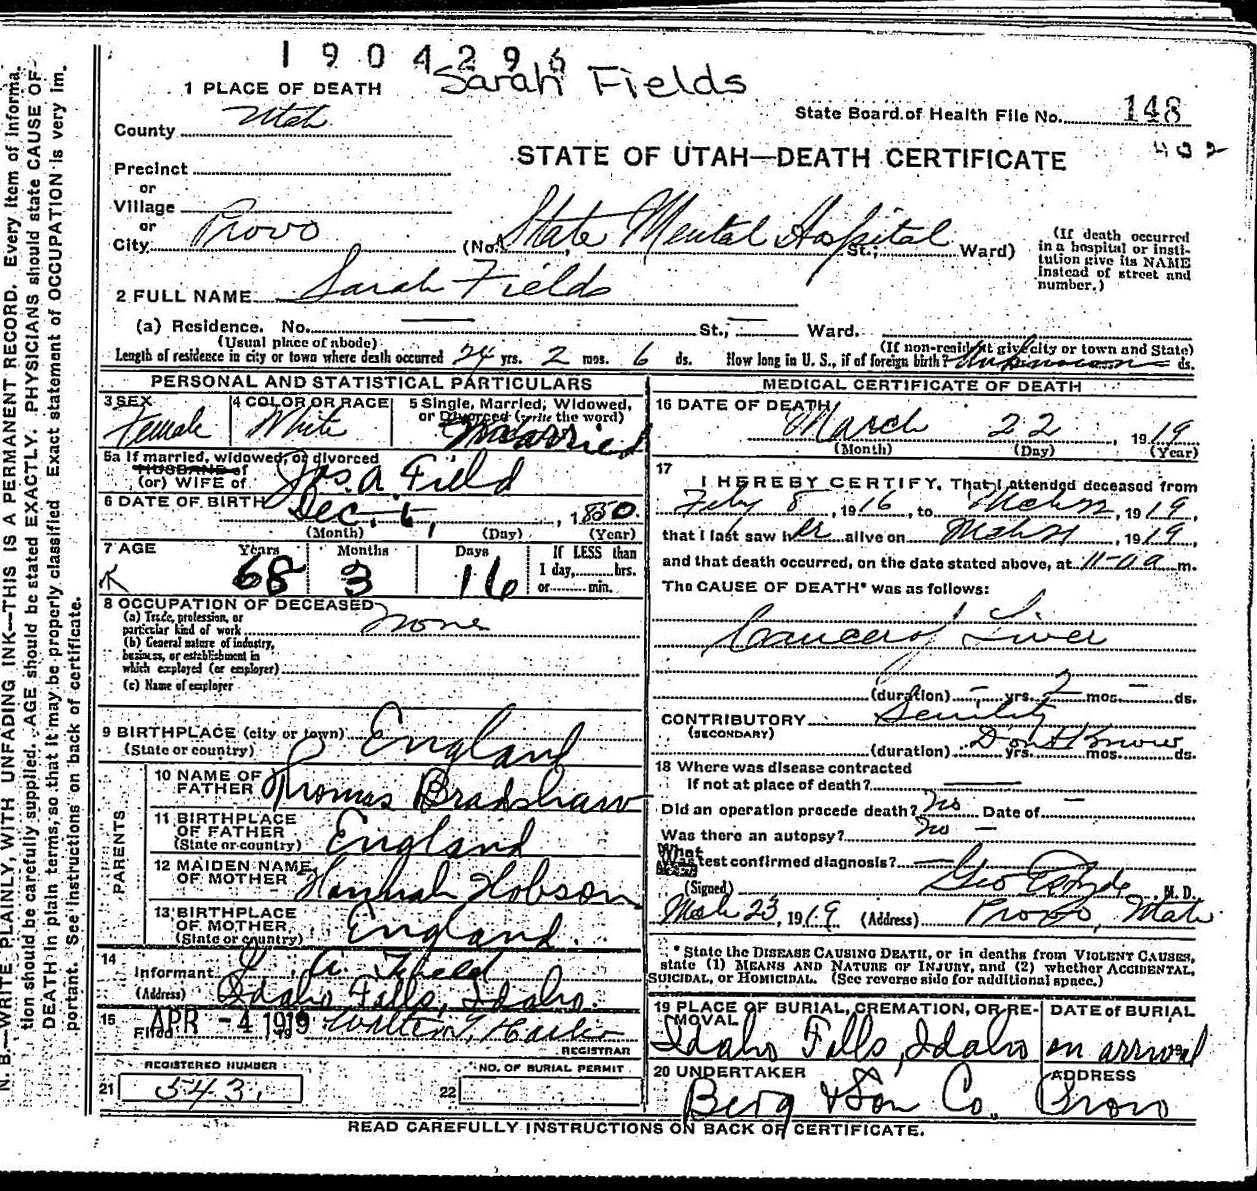 1904296
Sarah Fields
1 PLACE OF DEATH
State Board of Health File No. 148
County Utah
402
STATE OF UTAH—DEATH CERTIFICATE
Precinct
or
Village
or
City Provo (No. State Mental Hospital St.; Ward)
(If death occurred in a hospital or institution give its NAME instead of street and number.)
2 FULL NAME Sarah Fields
(a) Residence. No. St., Ward.
(Usual place of abode) (If non-resident give city or town and State)
Length of residence in city or town where death occurred 24 yrs. 2 mos. 6 ds. How long in U. S., if of foreign birth? Unknown ds.
PERSONAL AND STATISTICAL PARTICULARS
3 SEX Female
4 COLOR OR RACE White
5 Single, Married, Widowed, or Divorced (write the word) Married
5a If married, widowed, or divorced
HUSBAND of
(or) WIFE of Jas. A. Field
6 DATE OF BIRTH Dec. 6, 1850
(Month) (Day) (Year)
7 AGE Years Months Days If LESS than
68 3 16 1 day, hrs.
or min.
8 OCCUPATION OF DECEASED
(a) Trade, profession, or
particular kind of work none
(b) General nature of industry,
business, or establishment in
which employed (or employer)
(c) Name of employer
9 BIRTHPLACE (city or town) England
(State or country)
PARENTS
10 NAME OF
FATHER Thomas Bradshaw
11 BIRTHPLACE
OF FATHER England
(State or country)
12 MAIDEN NAME
OF MOTHER Hannah Hobson
13 BIRTHPLACE
OF MOTHER England.
(State or country)
14
Informant A. Field
(Address) Idaho Falls, Idaho.
15
Filed APR -4 1919 19
REGISTRAR
REGISTERED NUMBER NO. OF BURIAL PERMIT
21 543. 22
MEDICAL CERTIFICATE OF DEATH
16 DATE OF DEATH
March 22, 1919
(Month) (Day) (Year)
17
I HEREBY CERTIFY, That I attended deceased from
Feby 8, 1916, to Mch 22, 1919,
that I last saw her alive on Mch 21, 1919,
and that death occurred, on the date stated above, at m.
The CAUSE OF DEATH* was as follows:
Cancer of Liver
(duration) - yrs. 2 mos. - ds.
CONTRIBUTORY Senility
(SECONDARY)
(duration) Dont Know yrs. mos. ds.
18 Where was disease contracted
If not at place of death?
Did an operation precede death? No Date of -
Was there an autopsy? No -
What test confirmed diagnosis?
(Signed) Geo E Hyde M. D.
Mch 23, 1919 (Address) Provo, Utah
* State the DISEASE CAUSING DEATH, or in deaths from VIOLENT CAUSES,
state (1) MEANS AND NATURE OF INJURY, and (2) whether ACCIDENTAL,
SUICIDAL, or HOMICIDAL. (See reverse side for additional space.)
19 PLACE OF BURIAL, CREMATION, OR RE-
MOVAL
Idaho Falls, Idaho
DATE of BURIAL
on arrival
20 UNDERTAKER
Berg & Son Co.
ADDRESS
Provo
READ CAREFULLY INSTRUCTIONS ON BACK OF CERTIFICATE.
N. B.—WRITE PLAINLY, WITH UNFADING INK—THIS IS A PERMANENT RECORD. Every item of informa-
tion should be carefully supplied. AGE should be stated EXACTLY. PHYSICIANS should state CAUSE OF
DEATH in plain terms, so that it may be properly classified. Exact statement of OCCUPATION is very im-
portant. See instructions on back of certificate.